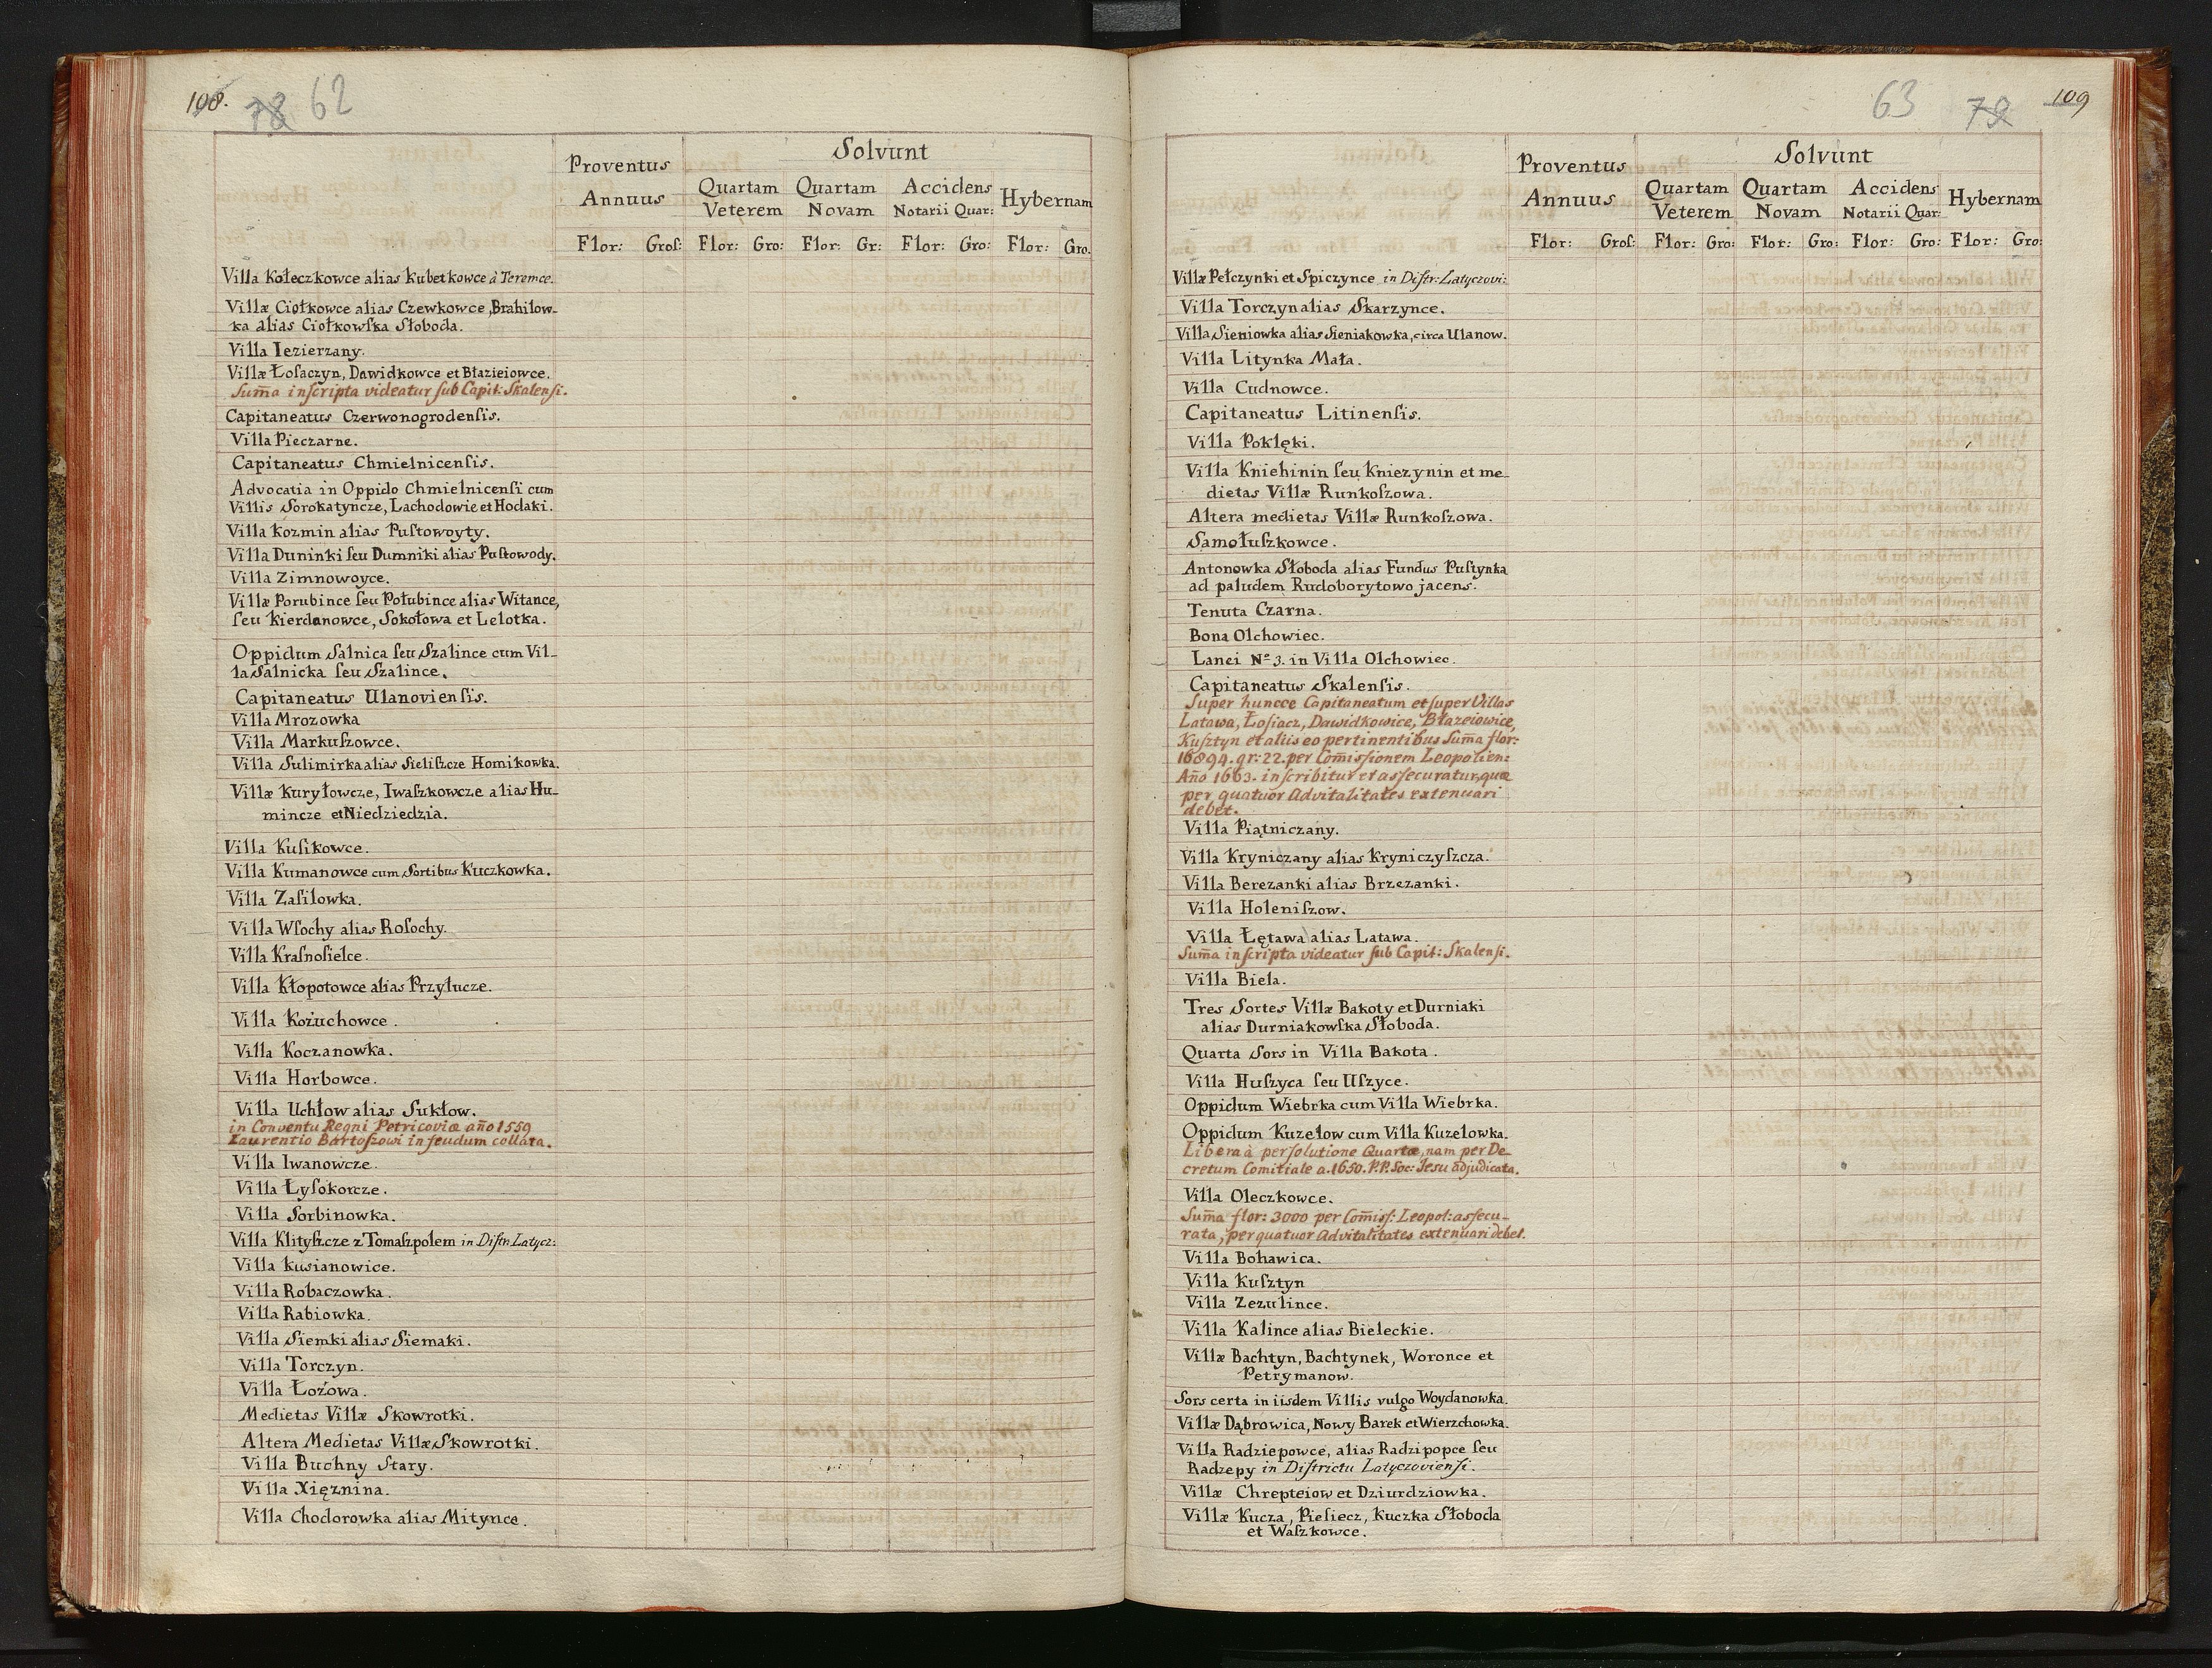 108. 78 62
Solvunt
Proventus
Annuus
Quartam Veterem
Quartam Novam
Accidens Notarii Quar:
Hybernam
Flor: Groſ: Flor: Gro: Flor: Gr: Flor: Gro: Flor: Gro.
Villa Kołeczkowce alias Kubetkowce à Teremce.
Villæ Ciołkowce alias Czewkowce, Brahilow-
ka alias Ciołkowſka Słoboda.
Villa Iezierzany.
Villæ Łoſaczyn, Dawidkowce et Błazieiowce.
Sum̃a inſcripta videatur ſub Capit: Skalenſi.
Capitaneatus Czerwonogrodenſis.
Villa Pieczarne.
Capitaneatus Chmielnicenſis.
Advocatia in Oppido Chmielnicenſi cum
Villis Sorokatyncze, Lachodowie et Hodaki.
Villa Kozmin alias Puſtowoyty.
Villa Duninki ſeu Dumniki alias Puſtowody.
Villa Zimnowoyce.
Villæ Porubince ſeu Połubince alias Witance,
ſeu Kierdanowce, Sokołowa et Lelotka.
Oppidum Salnica ſeu Szalince cum Vil-
la Salnicka ſeu Szalince.
Capitaneatus Ulanovienſis.
Villa Mrozowka
Villa Markuſzowce.
Villa Sulimirka alias Sieliſzcze Homikowka.
Villæ Kuryłowcze, Iwaſzkowcze alias Hu-
mincze et Niedziedzia.
Villa Kuſikowce.
Villa Kumanowce cum Sortibus Kuczkowka.
Villa Zaſilowka.
Villa Wſochy alias Roſochy.
Villa Kraſnoſielce.
Villa Kłopotowce alias Przyłucze.
Villa Kożuchowce.
Villa Koczanowka.
Villa Horbowce.
Villa Uchłow alias Sukłow.
in Conventu Regni Petricoviæ año 1559
Laurentio Bartoſzowi in feudum collata.
Villa Iwanowcze.
Villa Łyſokorcze.
Villa Sorbinowka.
Villa Klityſzcze z Tomaſzpolem in Diſtr. Latycz:
Villa Kusianowice.
Villa Robaczowka.
Villa Rabiowka.
Villa Siemki alias Siemaki.
Villa Torczyn.
Villa Łożowa.
Medietas Villæ Skowrotki.
Altera Medietas Villæ Skowrotki.
Villa Buchny Stary.
Villa Xięznina.
Villa Chodorowka alias Mitynce.
63 79 109
Solvunt
Proventus
Annuus
Quartam Veterem
Quartam Novam
Accidens Notarii Quar:
Hybernam
Flor: Groſ: Flor: Gro: Flor: Gro: Flor: Gro: Flor: Gro:
Villæ Pełczynki et Spiczynce in Diſtr: Latyczovi:
Villa Torczyn alias Skarzynce.
Villa Sieniowka alias Sieniakowka, circa Ulanow.
Villa Litynka Mała.
Villa Cudnowce.
Capitaneatus Litinenſis.
Villa Poklęki.
Villa Kniehinin ſeu Kniezynin et me-
dietas Villæ Runkoſzowa.
Altera medietas Villæ Runkoſzowa.
Samołuſzkowce.
Antonowka Słoboda alias Fundus Puſtynka
ad paludem Rudoborytowo jacens.
Tenuta Czarna.
Bona Olchowiec.
Lanei Nº 3. in Villa Olchowiec.
Capitaneatus Skalenſis.
Super huncce Capitaneatum et ſuper Villas
Latawa, Łoſiacz, Dawidkowice, Błazeiowice,
Kuſztyn et aliis eo pertinentibus Sum̃a flor:
16894. gr: 22. per Com̃iſſionem Leopolien:
Año 1663. inſcribitur et aſſecuratur, quæ
per quatuor Advitalitates extenuari
debet.
Villa Piątniczany.
Villa Kryniczany alias Kryniczyſzcza.
Villa Berezanki alias Brzezanki.
Villa Holeniſzow.
Villa Łętawa alias Latawa.
Sum̃a inſcripta videatur ſub Capit: Skalenſi.
Villa Biela.
Tres Sortes Villæ Bakoty et Durniaki
alias Durniakowſka Słoboda.
Quarta Sors in Villa Bakota.
Villa Huſzyca ſeu Uſzyce.
Oppidum Wiebrka cum Villa Wiebrka.
Oppidum Kuzelow cum Villa Kuzelowka.
Libera à perſolutione Quartæ, nam per De-
cretum Comitiale a. 1650. P.P. Soc: Jesu adjudicata.
Villa Oleczkowce.
Sum̃a flor: 3000 per Com̃iſſ: Leopol: aſſecu-
rata, per quatuor Advitalitates extenuari debet.
Villa Bohawica.
Villa Kuſztyn
Villa Zezulince.
Villa Kalince alias Bieleckie.
Villæ Bachtyn, Bachtynek, Woronce et
Petrymanow.
Sors certa in iisdem Villis vulgo Woydanowka.
Villæ Dąbrowica, Nowy Barek et Wierzchowka.
Villa Radziepowce, alias Radzipopce ſeu
Radzepy in Diſtrictu Latyczovienſi.
Villæ Chrepteiow et Dziurdziowka.
Villæ Kucza, Pieſiecz, Kuczka Słoboda
et Waſzkowce.